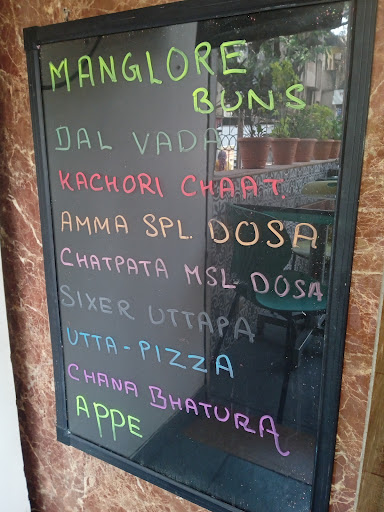 MANGLORE
BUNS
DAL VADA
KACHORI CHAAT.
AMMA SPL. DOSA
CHATPATA MSL DOSA
SIXER UTTAPA
UTTA-PIZZA
CHANA BHATURA
APPE